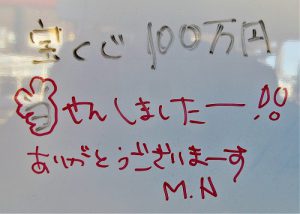 宝くじ100万円
せんしましたー!!
ありがとうございまーす
M.N